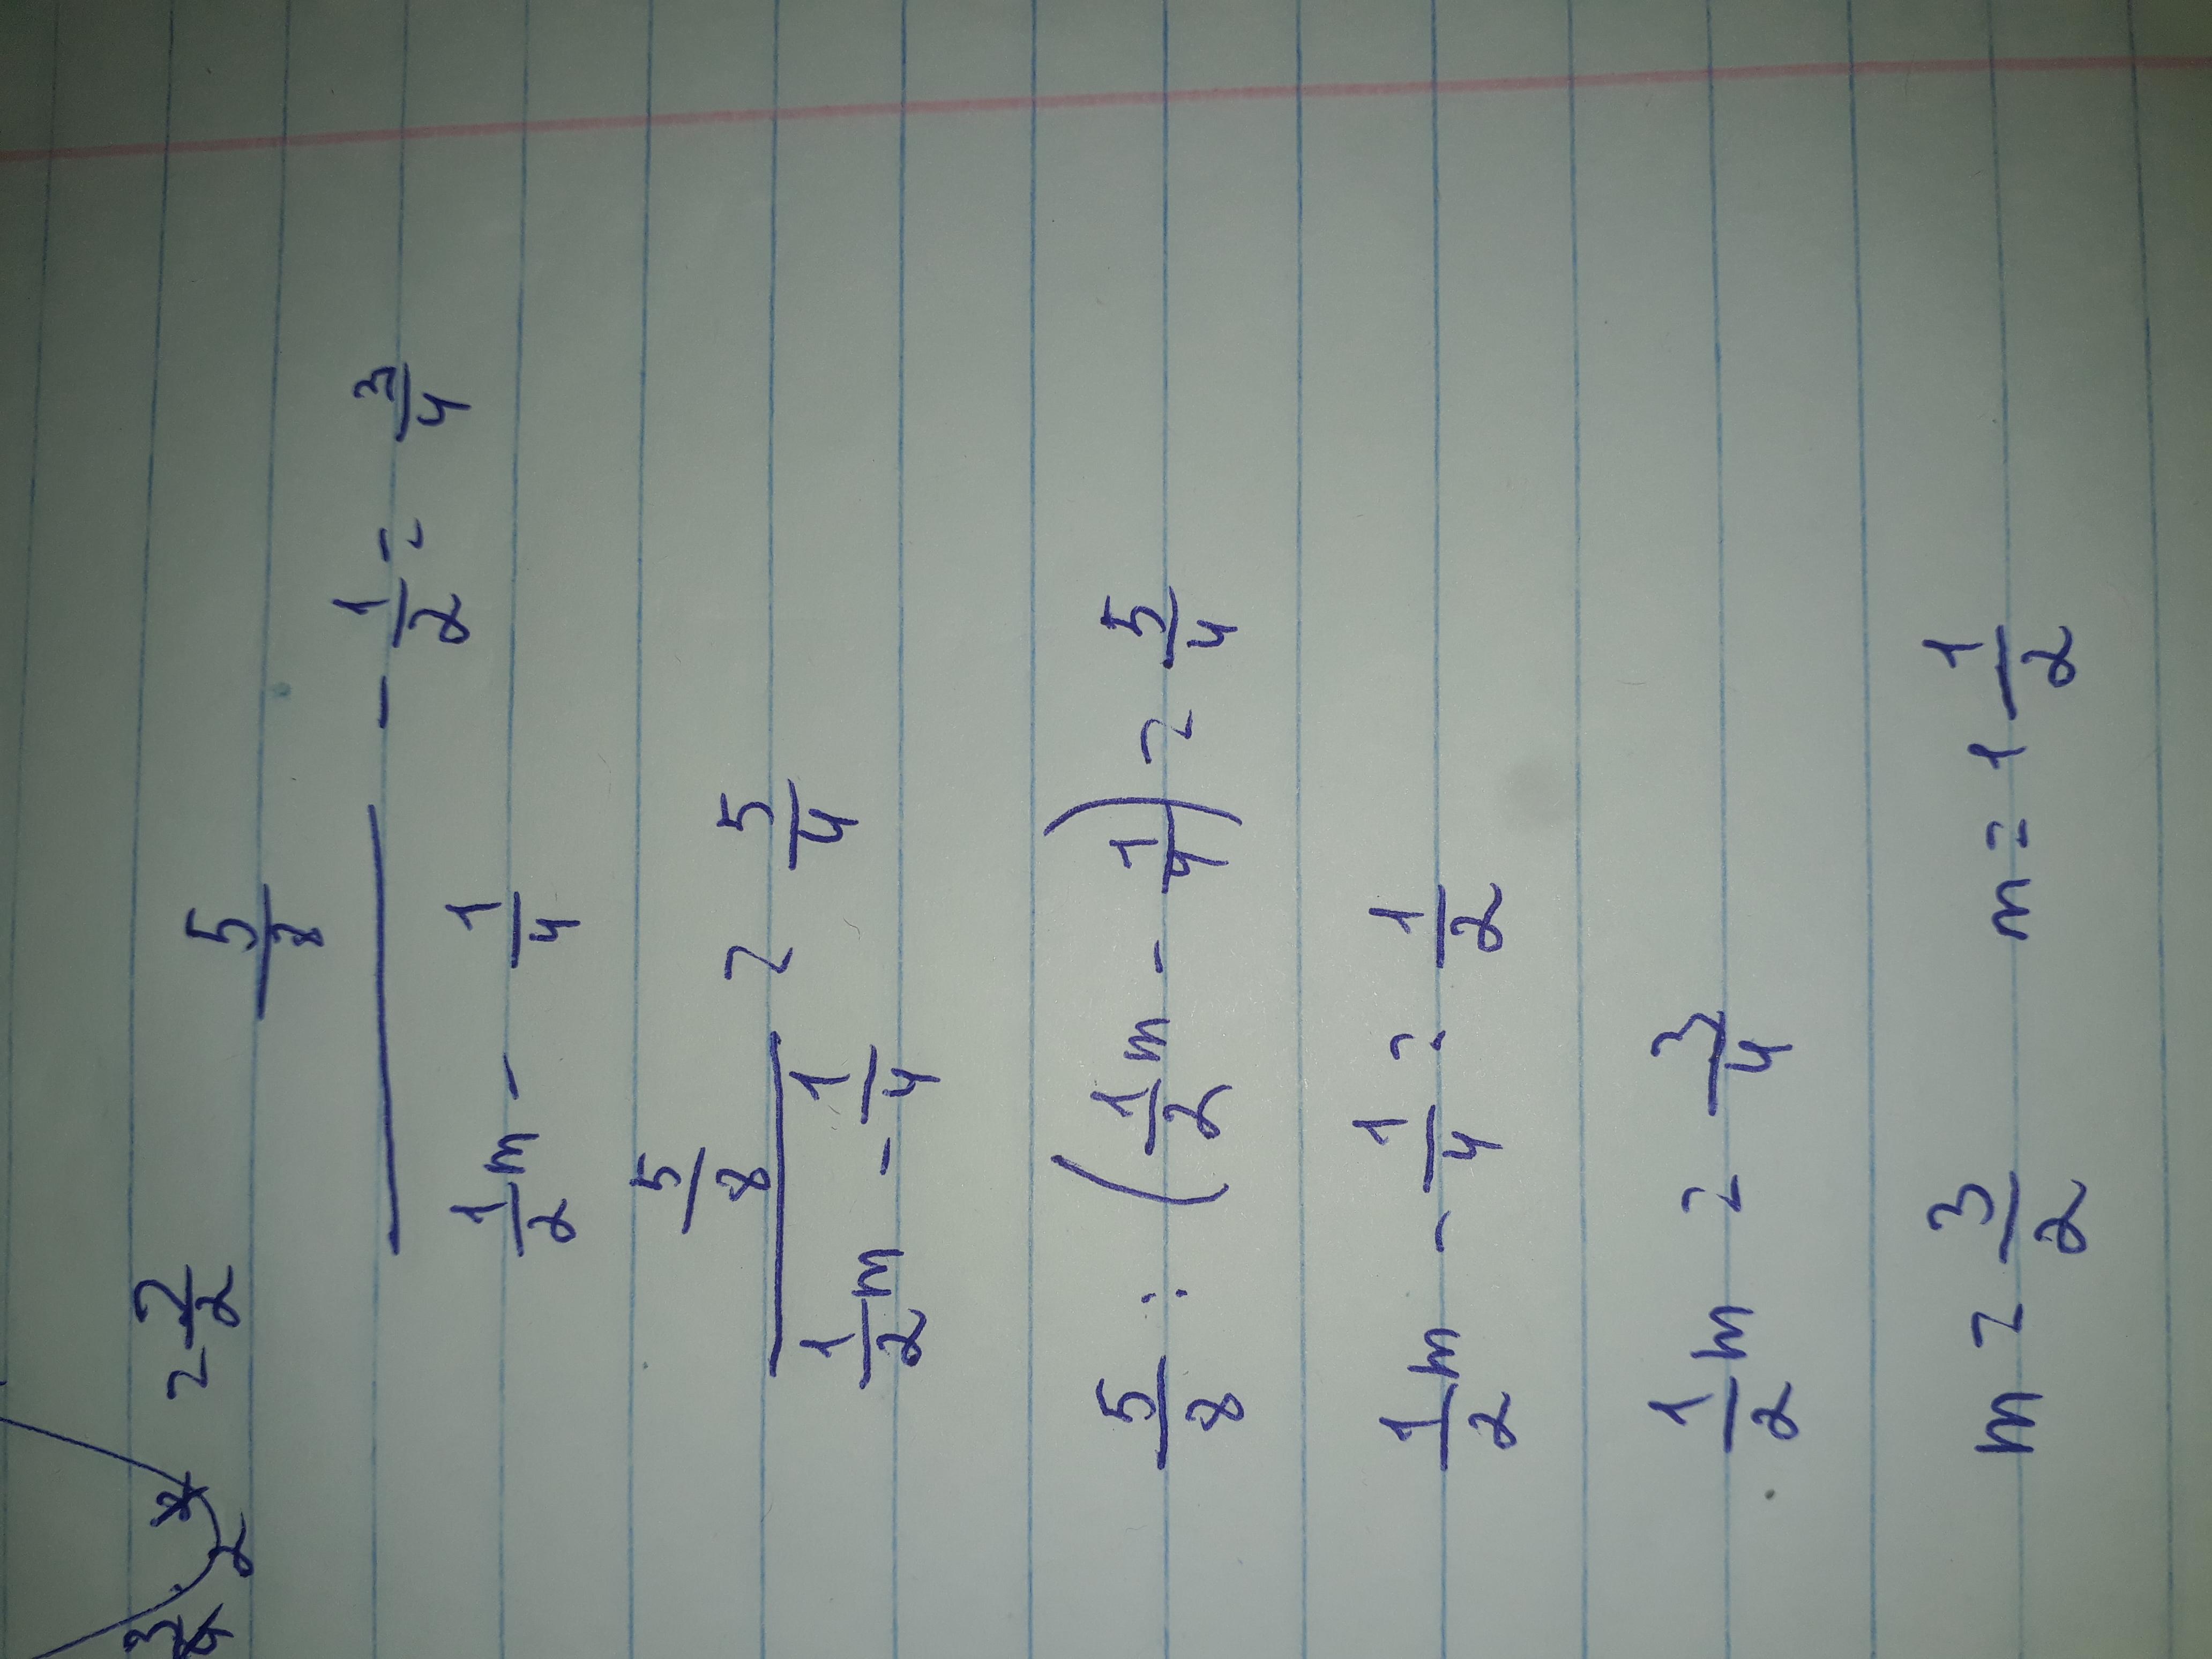 3/4 · 2 = 3/2
5/8
/ (1/2 m - 1/4) - 1/2 = 3/4
5/8 / (1/2 m - 1/4) = 5/4
5/8 : (1/2 m - 1/4) = 5/4
1/2 m - 1/4 = 1/2
1/2 m = 3/4
m = 3/2 m = 1 1/2